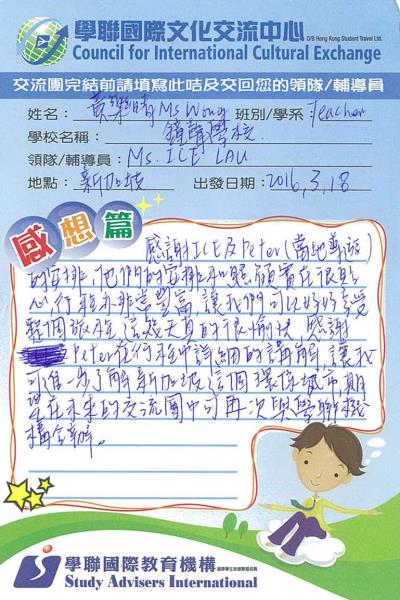 學聯國際文化交流中心
D/B Hong Kong Student Travel Ltd.
Council for International Cultural Exchange
交流團完結前請填寫此咭及交回您的領隊/輔導員
姓名：黃樂晴 Ms Wong 班別/學系：Teacher
學校名稱：鐘聲學校
領隊/輔導員：Ms. ICE LAU
地點：新加坡 出發日期：2016,3,18
感想篇
感謝ICE及Peter(當地導遊)
的安排,他們的安排和照顧實在很貼
心,行程亦非常豐富,讓我們可以好好享受
整個旅程,這幾天真的很愉快。感謝
Peter在行程中詳細的講解,讓我
可進一步了解新加坡這個環保城市。期
望在未來的交流團中可再次與學聯機
構合辦。
學聯國際教育機構
Study Advisers International